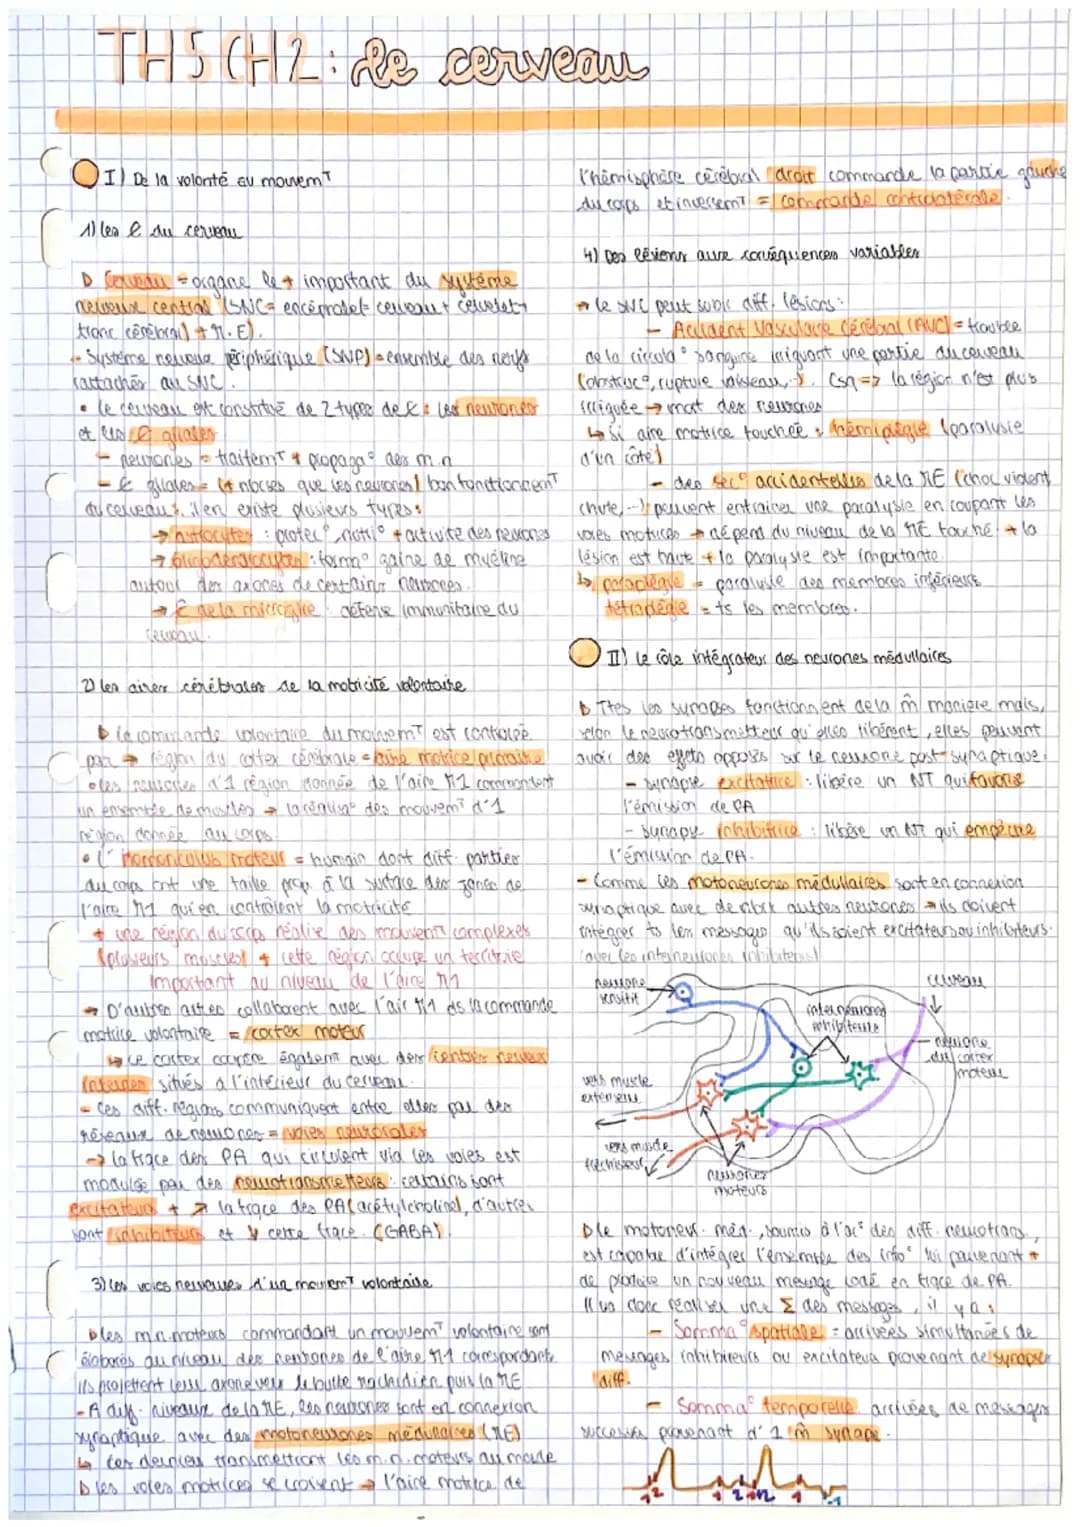 TH5 CH2 : le cerveau
I) De la volonté au mouvemT
1) les ₵ du cerveau
▷ Cerveau = organe le + important du système
nerveux central (SNC = encéphale = cerveau + cervelet +
tronc cérébral) + M.E).
Système nerveux périphérique (SNP) = ensemble des nerfs
rattachés au SNC.
• le cerveau est constitué de 2 types de ₵ : les neurones
et les ₵ gliales
- neurones = traitemT + propaga° des m.n
- ₵ gliales = (+ nbrses que les neurones) bon fonctionnemT
du cerveau : il en existe plusieurs types :
→ astrocytes : protec°, nutri° + activité des neurones
→ oligodendrocytes : forma° gaine de myéline
autour des axones de certains neurones.
→ ₵ de la microglie : défense immunitaire du
cerveau.
2) les aires cérébrales de la motricité volontaire
▷ la commande volontaire du mouvemT est contrôlée
par → région du cortex cérébrale = aire motrice primaire
• les neurones d'1 région donnée de l'aire M1 commandent
un ensemble de muscles → la réalisa° des mouvemT d'1
région donnée du corps.
• L'Homonculus moteur = humain dont diff. parties
du corps ont une taille prop. à la surface des zones de
l'aire M1 qui en contrôlent la motricité
+ une région du corps réalise des mouvemT complexes
(plusieurs muscles) + cette région occupe un territoire
important au niveau de l'aire M1
→ D'autres aires collaborent avec l'air M1 ds la commande
motrice volontaire = cortex moteur
↳ ce cortex coopère égalemT avec des centres nerveux
situés à l'intérieur du cerveau.
- Ces diff. régions communiquent entre elles par des
réseaux de neurones = voies neuronales
→ la fqce des PA qui circulent via les voies est
modulée par des neurotransmetteurs : certains sont
excitateurs + ↗ la fqce des PA (acétylcholine), d'autres
sont inhibiteurs et ↘ cette fqce. (GABA).
3) les voies nerveuses d'un mouvemT volontaire
▷ les m.n. moteurs commandant un mouvemT volontaire sont
élaborés au niveau des neurones de l'aire M1 correspondante
ils projettent leur axone vers le bulbe rachidien puis la ME
- A diff. niveaux de la ME, les neurones sont en connexion
synaptique avec des motoneurones médullaires (ME)
↳ ces derniers transmettront les m.n. moteurs au muscle
▷ les voies motrices se croisent → l'aire motrice de
l'hémisphère cérébral droit commande la partie gauche
du corps et inversemT = commande controlatérale.
4) Des lésions aux conséquences variables
→ le SNC peut subir diff. lésions :
- Accident Vasculaire Cérébral (AVC) = trouble
de la circula° sanguine irriguant une partie du cerveau
(obstruc°, rupture vaisseau,...). Csq => la région n'est plus
irriguée → mort des neurones
↳ si aire motrice touchée : hémiplégie (paralysie
d'un côté)
- des sec° accidentelles de la ME (choc violent,
chute,...) peuvent entraîner une paralysie en coupant les
voies motrices → dépend du niveau de la ME touché : + la
lésion est haute + la paralysie est importante.
↳ paraplégie = paralysie des membres inférieurs
tétraplégie = ts les membres.
II) Le rôle intégrateur des neurones médullaires
▷ Ttes les synapses fonctionnent de la m̂ manière mais,
selon le neurotransmetteur qu'elles libèrent, elles peuvent
avoir des effets opposés sur le neurone post-synaptique.
- synapse excitatrice : libère un NT qui favorise
l'émission de PA
- synapse inhibitrice : libère un NT qui empêche
l'émission de PA.
- Comme les motoneurones médullaires sont en connexion
synaptique avec de nbrx autres neurones → ils doivent
intégrer ts les messages qu'ils soient excitateurs ou inhibiteurs.
(avec les interneurones inhibiteurs)
neurone
sensitif
cerveau
interneurones
inhibiteurs
neurone
du cortex
moteur
vers muscle
extenseur
vers muscle
fléchisseur
neurones
moteurs
▷ le motoneur. méd., soumis à l'ac° des diff. neurotrans.,
est capable d'intégrer l'ensemble des info° lui parvenant +
de produire un nouveau message codé en fqce de PA.
Il va donc réaliser une Σ des messages, il y a :
- Somma° spatiale : arrivées simultanées de
messages inhibiteurs ou excitateurs provenant de synapses
diff.
- Somma° temporelle : arrivées de messages
successifs provenant d'1 m̂ synapse.